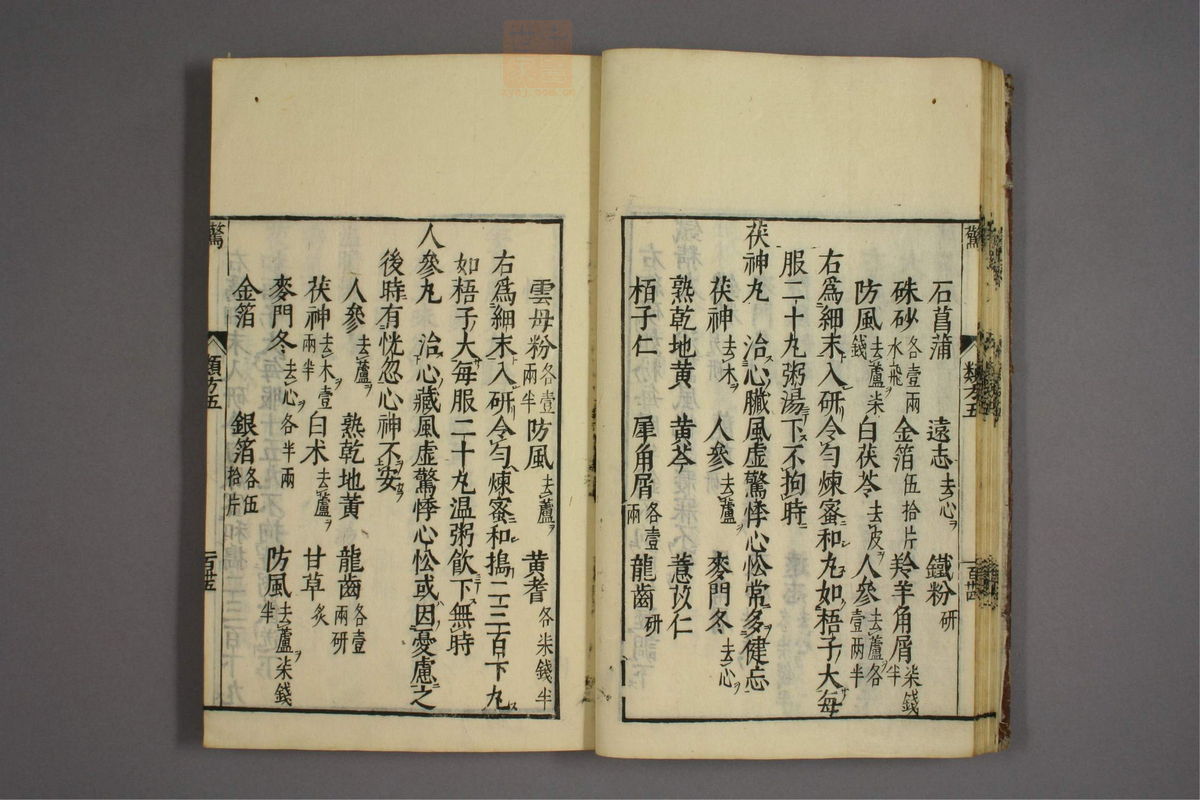 驚
類方五
石菖蒲 遠志去心ヲ 鐵粉研
硃砂各壹兩水飛 金箔伍拾片 羚羊角屑柒錢半
防風去蘆ヲ柒錢 白茯苓去皮ヲ 人參去蘆ヲ各壹兩半
右爲細末入研令勻煉蜜和丸如梧子大每
服二十丸粥湯下不拘時
茯神丸 治心臟風虛驚悸心忪常多健忘
茯神去木ヲ 人參去蘆ヲ 麥門冬去心ヲ
熟乾地黃 黃芩 薏苡仁
栢子仁 犀角屑各壹兩 龍齒研
雲母粉各壹兩半 防風去蘆ヲ 黃耆各柒錢半
右爲細末入研令勻煉蜜和搗二三百下丸
如梧子大每服二十丸溫粥飲下無時
人參丸 治心藏風虛驚悸心忪或因憂慮之
後時有恍忽心神不安
人參去蘆ヲ 熟乾地黃 龍齒各壹兩研
茯神去木ヲ壹兩半 白朮去蘆ヲ 甘草炙
麥門冬去心ヲ各半兩 防風去蘆ヲ柒錢半
金箔 銀箔各伍拾片
驚
類方五